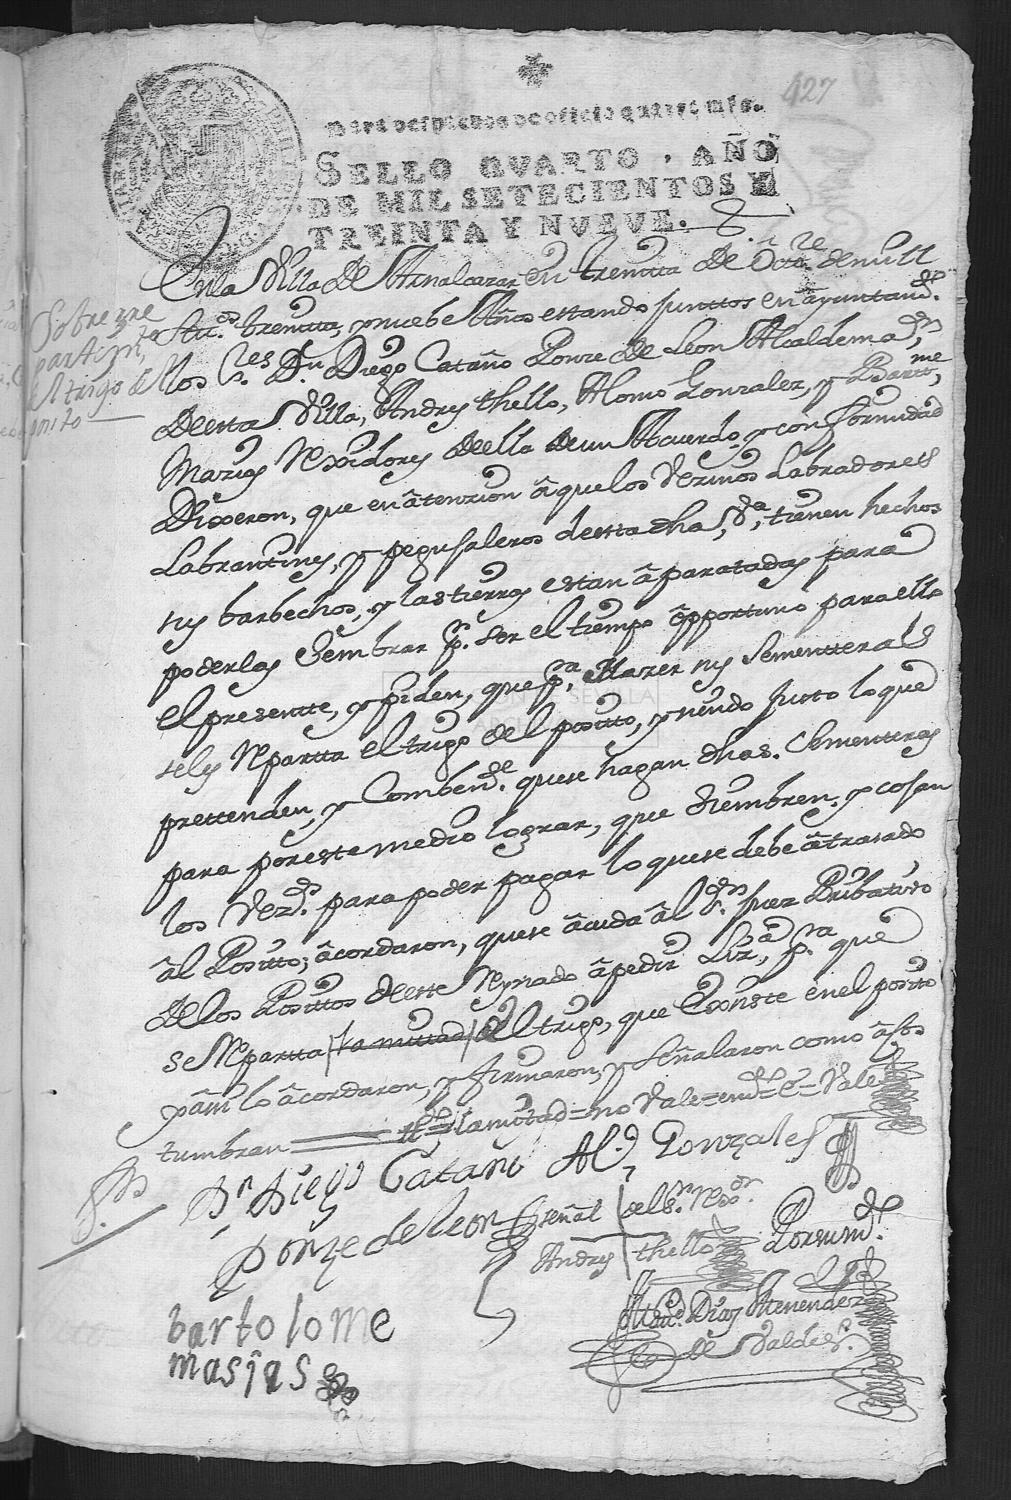 427
Para despachos de oficio quatro mrs.
SELLO QVARTO, AÑO
DE MIL SETECIENTOS Y
TREINTA Y NVEVE.
Sobre rre
partim.to
del trigo del
posito
En la Villa de Aznalcazar en treinta de Oct.re de mill
setz.os treinta, y nuebe Años estando juntos en ayuntam.to
los S.res D.n Diego Cataño Ponze de Leon Alcalde
desta Villa, Andres thello, Alonso Gonzalez, y Bart.me
Marias Rexidores de ella de un Acuerdo y conformidad
Dixeron, que en âtenzion â que los Vezinos Labradores
Labrantines, y pegujaleros desta dha V.a, tienen hechos
sus barbechos, y las tierras estan âparatadas para
poderlas Sembrar p.r ser el tiempo ôpportuno para ello
el presentte, y piden, que p.a Hazer sus Sementteras
se les Repartta el trigo del positto, y siendo Justo lo que
prettenden, y Combente. que se hagan dhas. Sementeras
para por este medio lograr, que Siembren, y cojan
los Vez.os para poder pagar lo que se debe âtrasado
âl Positto; âcordaron, que se âcuda âl S.or Juez Pribativo
de los Posittos deeste Reynado âpedir Liz.a, p.a que
se Repartta la mittad del trigo, que Existe en el positto
y âsi lo âcordaron, y firmaron, y señalaron como âcos
tumbran = t.do = la mitad = no Vale = em.do = e = Vale
D.n Diego Cataño
Ponze de leon
Al.o Gonzales
Señal del S.r Rex.or
Andres thello
Por su m.do
bartolome
masias
Fran.co Dias Menendez
de Valdes.